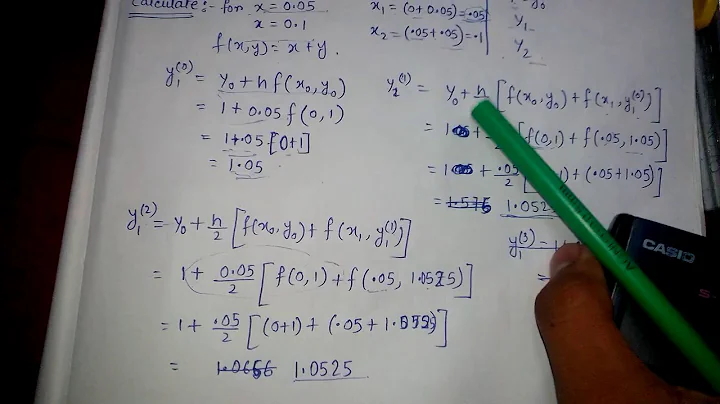 Calculate:- for x = 0.05
x = 0.1
f(x,y) = x + y.
x₁ = (0 + 0.05) = .05
x₂ = (.05 + .05) = .1
y₀
y₁
y₂
y₁⁽⁰⁾ = y₀ + h f(x₀, y₀)
= 1 + 0.05 f(0, 1)
= 1 + .05 [0+1]
= 1.05
y₂⁽¹⁾ = y₀ + h/ [f(x₀, y₀) + f(x₁, y₁⁽⁰⁾)]
= 1 + [f(0, 1) + f(.05, 1.05)]
= 1 + .05/2 [ 1) + (.05 + 1.05)]
= 1.576 1.052
y₁⁽²⁾ = y₀ + h/2 [f(x₀, y₀) + f(x₁, y₁⁽¹⁾)]
= 1 + 0.05/2 [f(0, 1) + f(.05, 1.0525)]
= 1 + .05/2 [(0+1) + (.05 + 1.0525)]
= 1.0656 1.0525
y₁⁽³⁾ =
=
CASIO
S